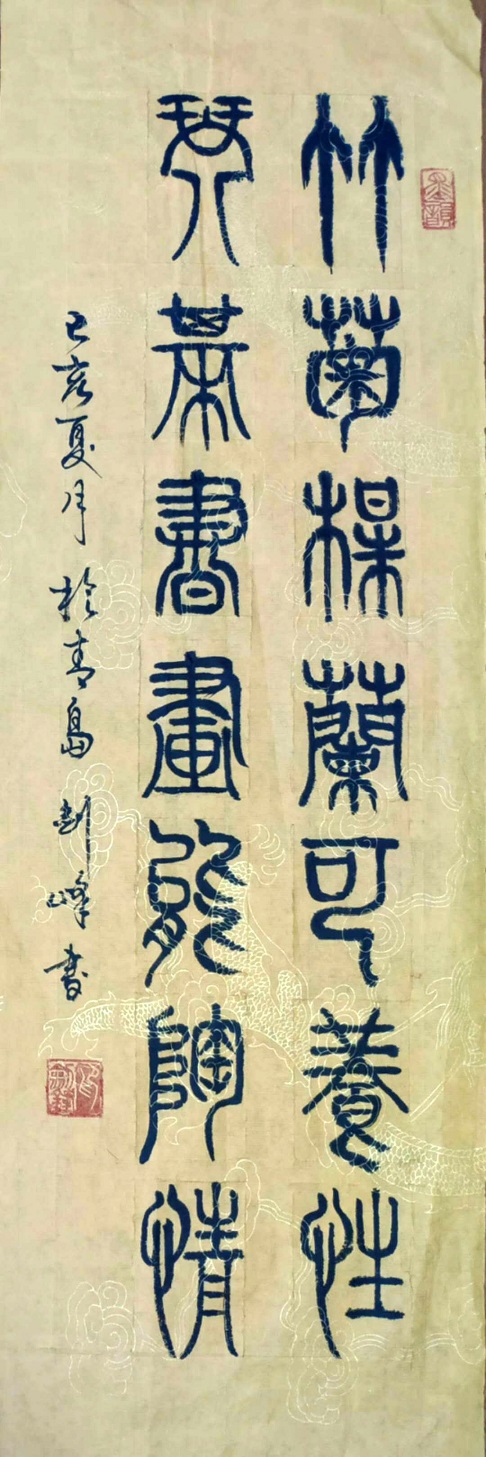 竹菊楳蘭可養性
琴棊書畫能陶情
己亥夏月於青島劍峰書